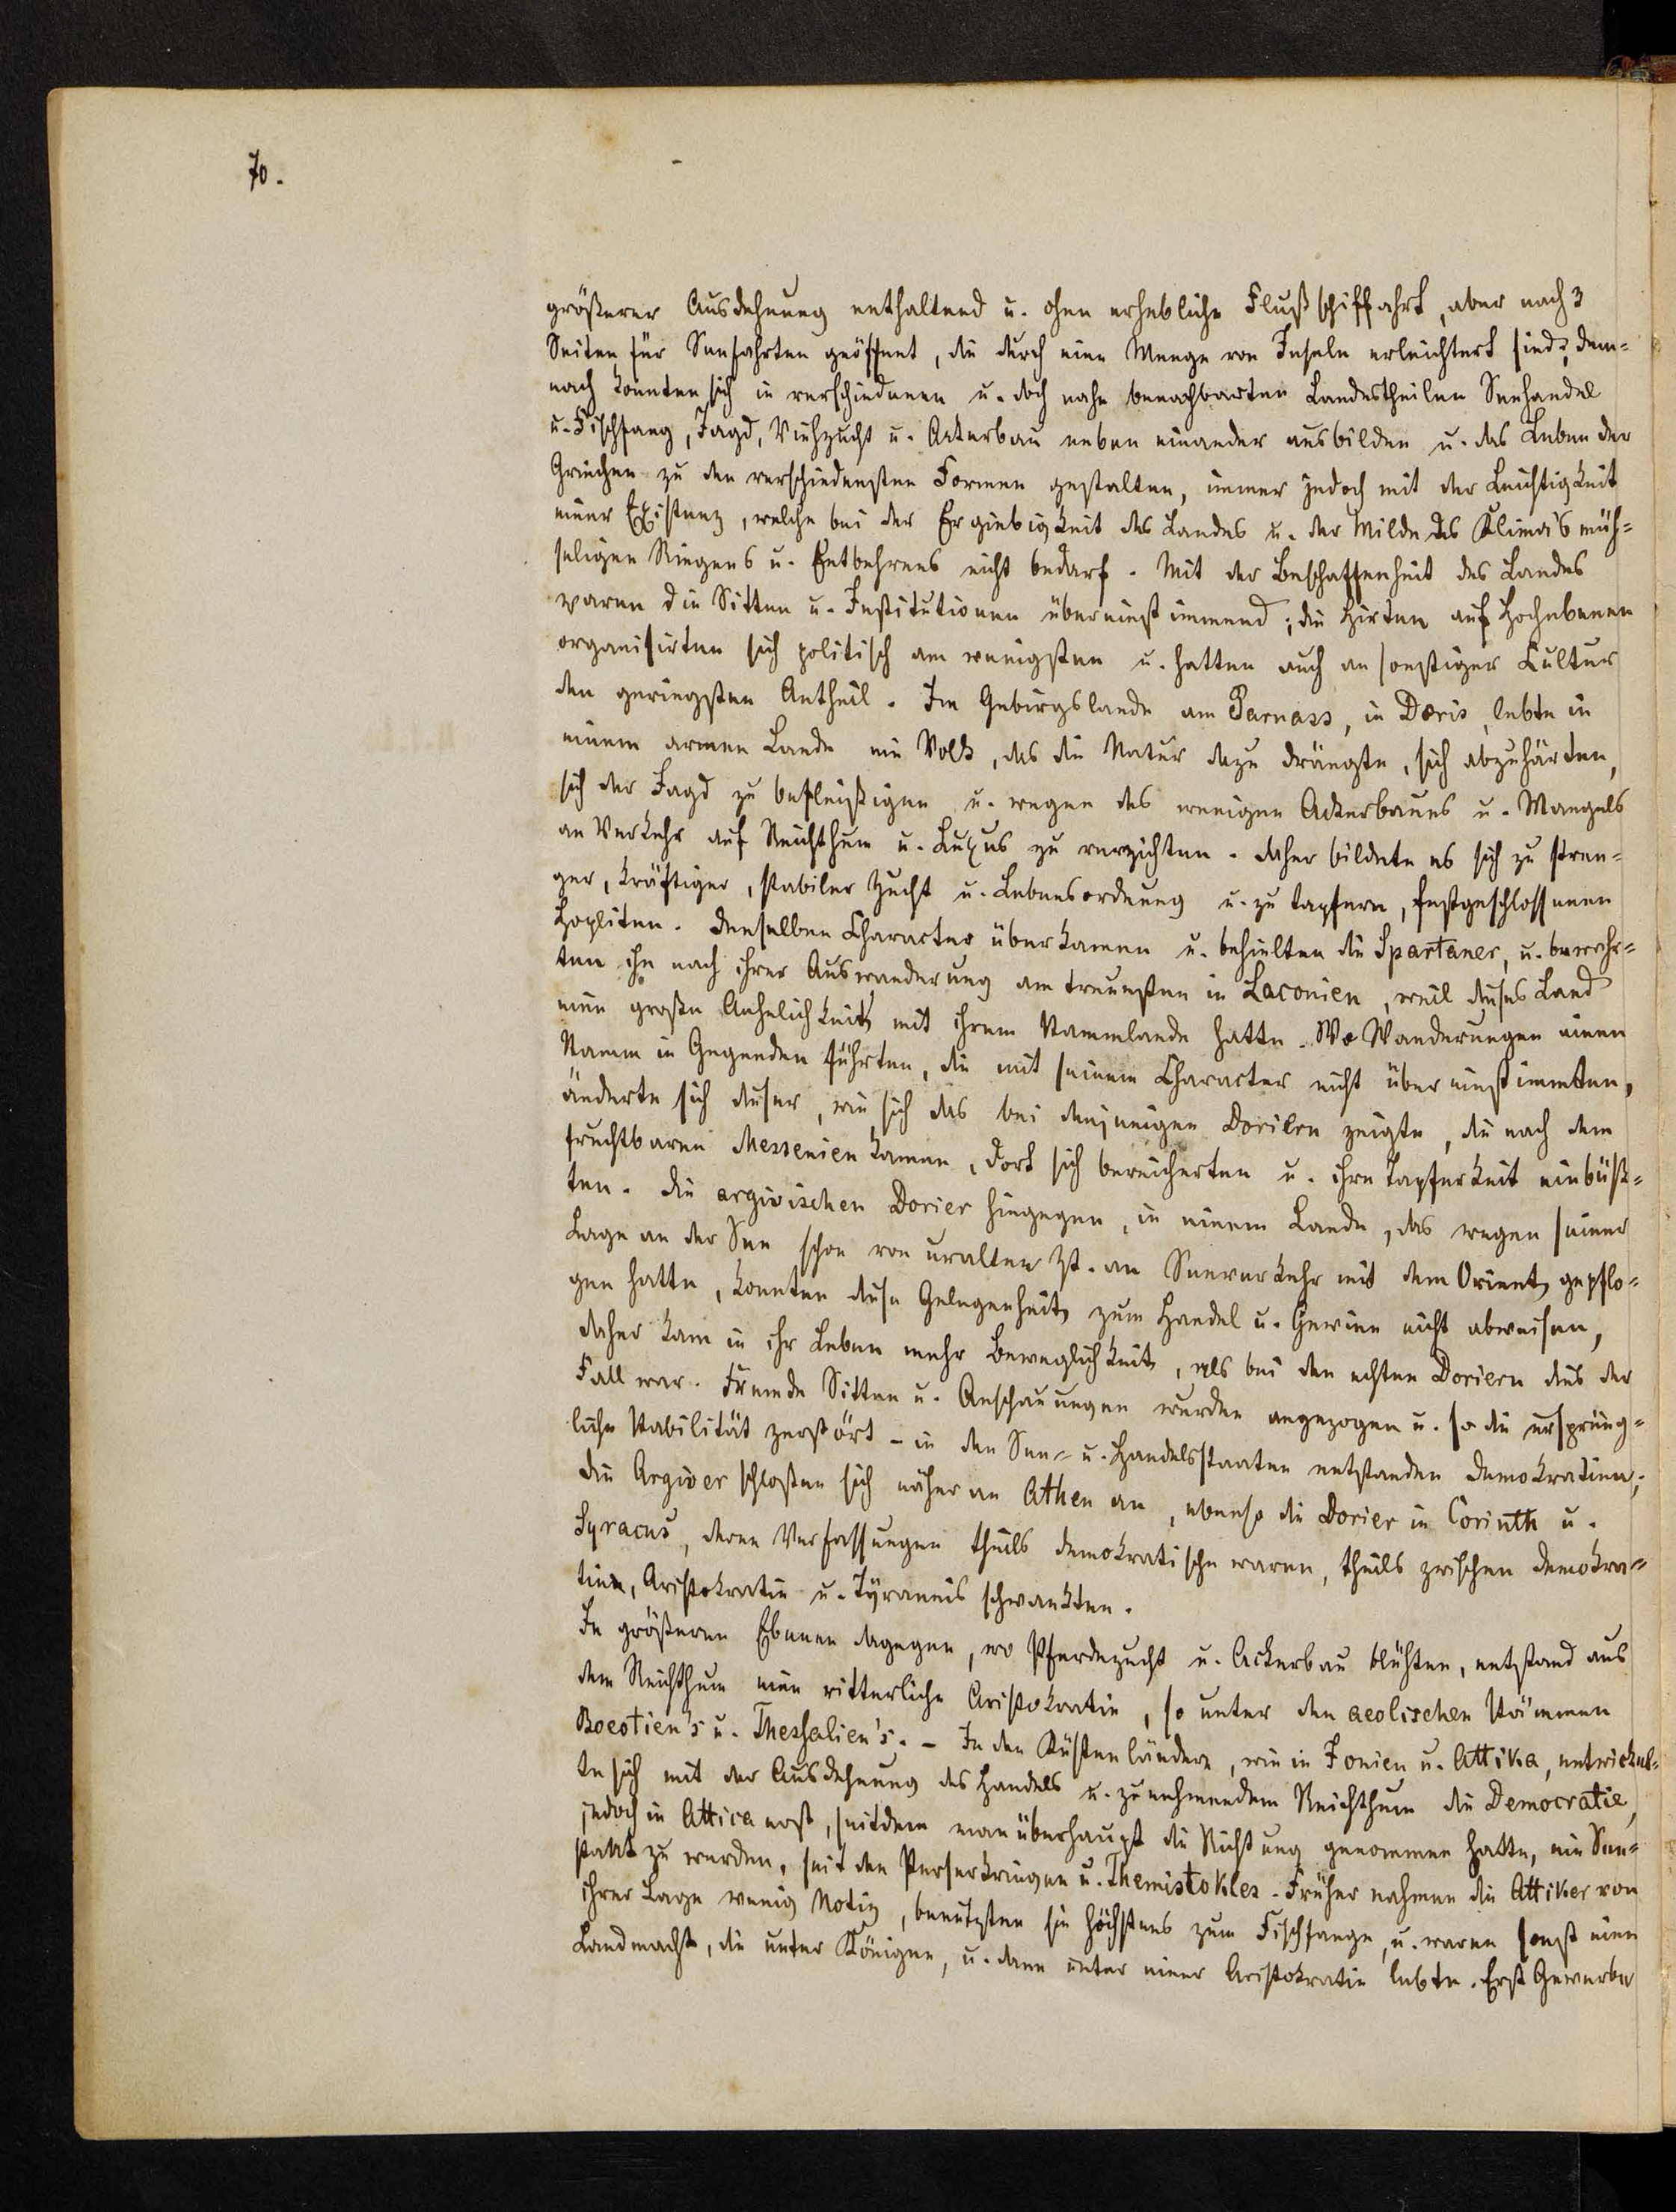 70.
größerer Ausdehnung enthaltend u. ohne erhebliche Flußschiffahrt, aber nach 3
Seiten für Seefahrten geöffnet, die durch eine Menge von Inseln erleichtert sind; dem-
nach konnten sich in verschiedenen u. doch nahe benachbarten Landestheilen Seehandel
u. Fischfang, Jagd, Viehzucht u. Ackerbau neben einander ausbilden u. das Leben der
Griechen zu den verschiedensten Formen gestalten, immer jedoch mit der Leichtigkeit
einer Existenz, welche bei der Ergiebigkeit des Landes u. der Milde des Klima's müh-
seligen Ringens u. Entbehrens nicht bedarf. Mit der Beschaffenheit des Landes
waren die Sitten u. Institutionen übereinstimmend; die Hirten auf Hochebenen
organisirten sich politisch am wenigsten u. hatten auch an sonstiger Cultur
den geringsten Antheil. Im Gebirgslande am Parnass, in Doris, lebte in
einem armen Lande ein Volk, das die Natur dazu drängte, sich abzuhärten,
sich der Jagd zu befleißigen u. wegen des wenigen Ackerbaues u. Mangels
an Verkehr auf Reichthum u. Luxus zu verzichten. daher bildete es sich zu stren-
ger, kräftiger, stabiler Zucht u. Lebensordnung u. zu tapfern, festgeschlossenen
Hopliten. Denselben Character überkamen u. behielten die Spartaner, u. bewahr-
ten ihn nach ihrer Auswanderung am treuesten in Laconien, weil dieses Land
eine große Aehnlichkeit mit ihrem Stammlande hatte. Wo Wanderungen einen
Stamm in Gegenden führten, die mit seinem Character nicht übereinstimmten,
änderte sich dieser, wie sich das bei denjenigen Doriern zeigte, die nach dem
fruchtbaren Messenien kamen, dort sich bereicherten u. ihre Tapferkeit einbüß-
ten. Die argivischen Dorier hingegen, in einem Lande, das wegen seiner
Lage an der See schon von uralter Zt. an Seeverkehr mit dem Orient gepflo-
gen hatte, konnten diese Gelegenheit zum Handel u. Gewinn nicht abweisen,
daher kam in ihr Leben mehr Beweglichkeit, als bei den echten Doriern dies der
Fall war. Fremde Sitten u. Anschauungen wurden angezogen u. so die ursprüng-
liche Stabilität zerstört - in den See- u. Handelsstaaten entstanden Demokratien;
die Argiver schloßen sich näher an Athen an, ebenso die Dorier in Corinth u.
Syracus, deren Verfassungen theils demokratische waren, theils zwischen Demokra-
tie, Aristokratie u. Tyrannis schwankten.
In größeren Ebenen dagegen, wo Pferdezucht u. Ackerbau blühten, entstand aus
dem Reichthum eine ritterliche Aristokratie, so unter den aeolischen Stämmen
Boeotien's u. Thessalien's. - In den Küstenländern, wie in Jonien u. Attika, entwickel-
te sich mit der Ausdehnung des Handels u. zunehmendem Reichthum die Democratie,
jedoch in Attica erst, seitdem man überhaupt die Richtung genommen hatte, ein See-
staat zu werden, seit den Perserkriegen u. Themistokles. Früher nahmen die Attiker von
ihrer Lage wenig Notiz, benutzten sie höchstens zum Fischfange, u. waren sonst eine
Landmacht, die unter Königen, u. dann unter einer Aristokratie lebte. Erst Gewerbe